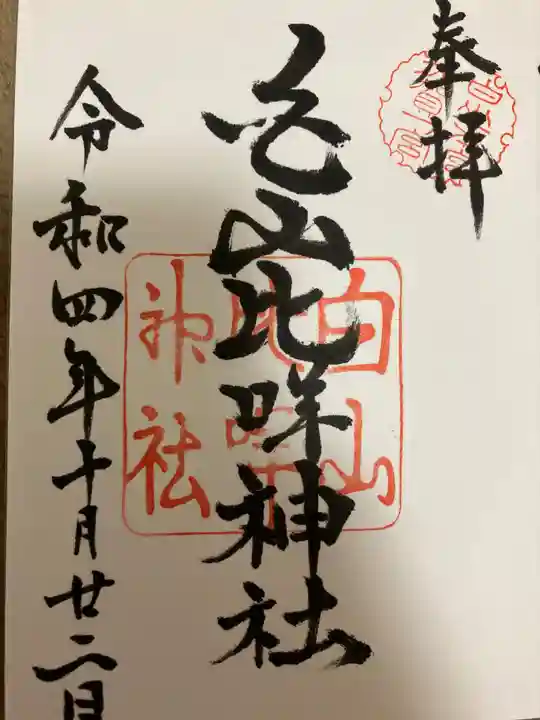 奉拝
白山比咩神社
令和四年十月廿二日
白山
比咩
神社